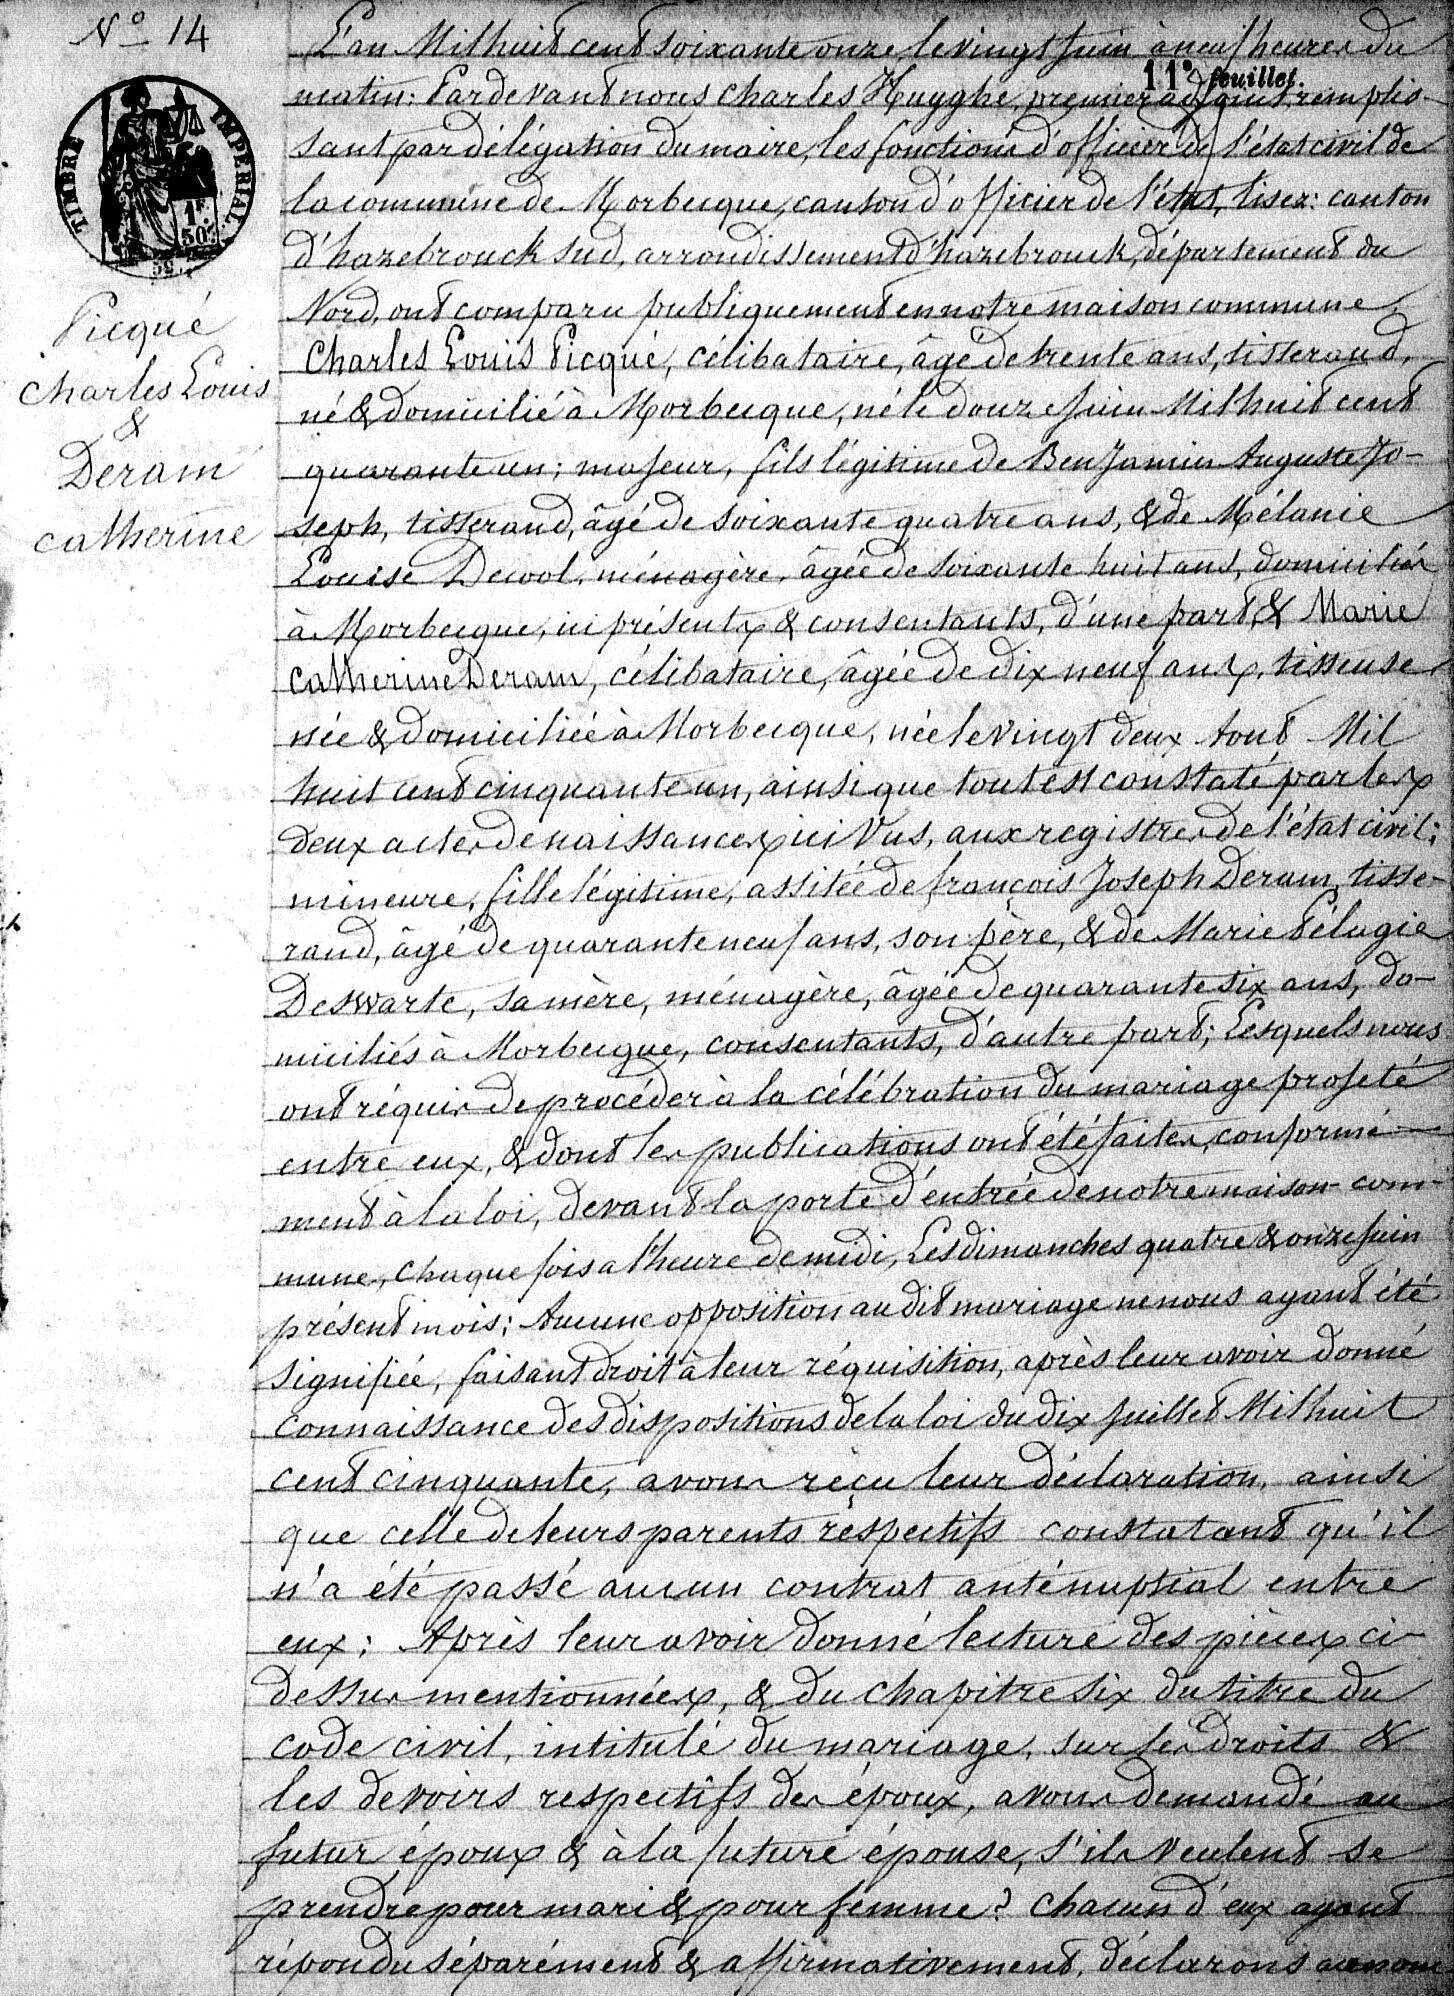 N° 14
TIMBRE IMPERIAL
1F.
50c.
59
11e feuillet.
Picqué
Charles Louis
&
Deram
Catherine
L'an Mil huit cent soixante onze, le vingt Juin à neuf heures du
matin: Pardevant nous Charles Huyghe, premier adjoint remplis-
sant par délégation du maire, les fonctions d'officier de l'état civil de
la commune de Morbecque, canton d'officier de l'état, lisez: canton
d'hazebrouck sud, arrondissement d'hazebrouck, département du
Nord, ont comparu publiquement en notre maison commune,
Charles Louis Picqué, célibataire, âgé de trente ans, tisserand,
né & domicilié à Morbecque, né le douze Juin Mil huit cent
quarante un; majeur, fils légitime de Benjamin Auguste Jo-
seph, tisserand, âgé de soixante quatre ans, & de Mélanie
Louise Decool, ménagère, âgée de soixante huit ans, domiciliés
à Morbecque, ici présents & consentants, d'une part, & Marie
Catherine Deram, célibataire, âgée de dix neuf ans, tisseuse
née & domiciliée à Morbecque, née le vingt deux Aout Mil
huit cent cinquante un, ainsi que tout est constaté par les
deux actes de naissances ici vus, aux registres de l'état civil;
mineure, fille légitime, assitée de françois Joseph Deram, tisse-
rand, âgé de quarante neuf ans, son père, & de Marie Pélagie
Deswarte, sa mère, ménagère, âgée de quarante six ans, do-
miciliés à Morbecque, consentants, d'autre part; Lesquels nous
ont réquis de procéder à la célébration du mariage projeté
entre eux, & dont les publications ont été faites, conformé-
ment à la loi, devant la porte d'entrée de notre maison com-
mune, chaque fois a l'heure de midi, Les dimanches quatre & onze Juin
présent mois; Aucune opposition au dit mariage ne nous ayant été
signifiée, faisant droit à leur réquisition, après leur avoir donné
connaissance des dispositions de la loi du dix Juillet Mil huit
cent cinquante, avons reçu leur déclaration, ainsi
que celle de leurs parents respectifs constatant qu'il
n'a été passé aucun contrat anténuptial entre
eux; Après leur avoir donné lecture des pièces ci-
dessus mentionnées, & du chapitre six du titre du
code civil, intitulé du mariage, sur les droits &
les devoirs respectifs des époux, avons demandé au
futur époux & à la future épouse, s'ils veulent se
prendre pour mari & pour femme? chacun d'eux ayant
répondu séparément & affirmativement, déclarons au nom